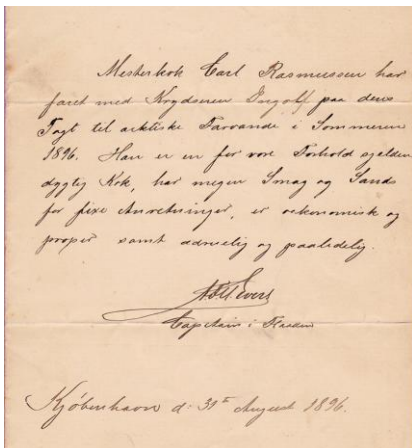 Mesterkok Carl Rasmussen har
faret med Krydseren Ingolf paa dens
Togt til arktiske Farvande i Sommeren
1896. Han er en for vore Forhold sjelden
dygtig Kok, har megen Smag og Sands
for fixe Anretninger, er oekonomisk og
proper samt ædruelig og paalidelig.
Capitain i Flaaden
Kjöbenhavn d. 31te August 1896.